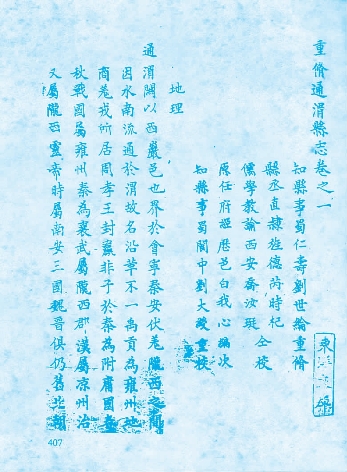 重脩通渭縣志卷之一
知縣事蜀仁壽劉世綸重脩
縣丞直隸旌德芮時杞
儒學教諭西安喬汝珽
仝校
原任府經歷邑白我心編次
知縣事蜀閬中劉大
重校
地理
通渭闗以西巖邑也界於會寧秦安伏羌隴西之間
因水南流通於渭故名沿革不一禹貢為雍州地
商為戎所居周孝王封嬴非子於秦為附庸國春
秋戰國屬雍州秦為襄武屬隴西郡漢屬凉州治
又屬隴西靈帝時屬南安三國魏晉俱仍舊北朝
407